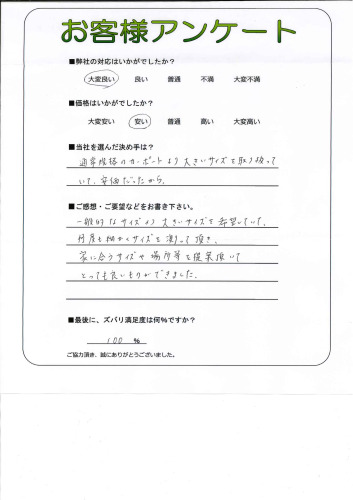 お客様アンケート
■弊社の対応はいかがでしたか？
大変良い 良い 普通 不満 大変不満
■価格はいかがでしたか？
大変安い 安い 普通 高い 大変高い
■当社を選んだ決め手は？
通常規格のカーポートより大きいサイズを取り扱って
いて、安価だったから。
■ご感想・ご要望などをお書き下さい。
一般的なサイズより大きいサイズを希望していて、
何度も細かくサイズを測って頂き、
家に合うサイズや場所等を提案頂いて
とっても良いものができました。
■最後に、ズバリ満足度は何％ですか？
100 ％
ご協力頂き、誠にありがとうございました。